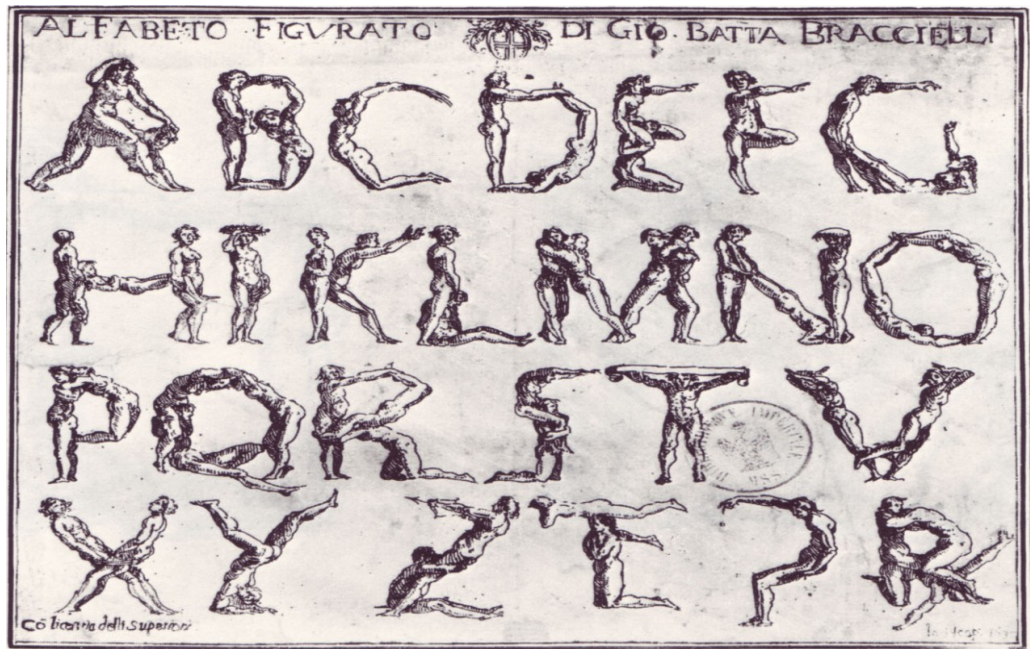 ALFABETO FIGVRATO DI GIO BATTA BRACCIELLI
A B C D E F G
H I K L M N O
P Q R S T V
X Y Z
Cō licentia delli Superiori